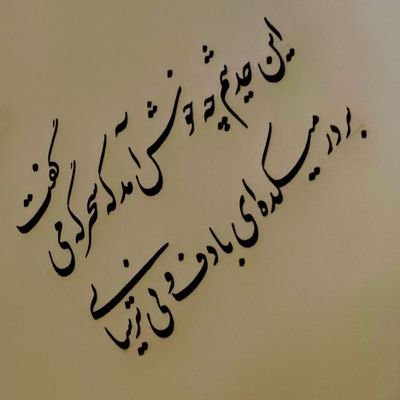 این حدیثم چه خوش آمد که سحرگه می گفت
بر در میکده ای با دف و نی ترسایی